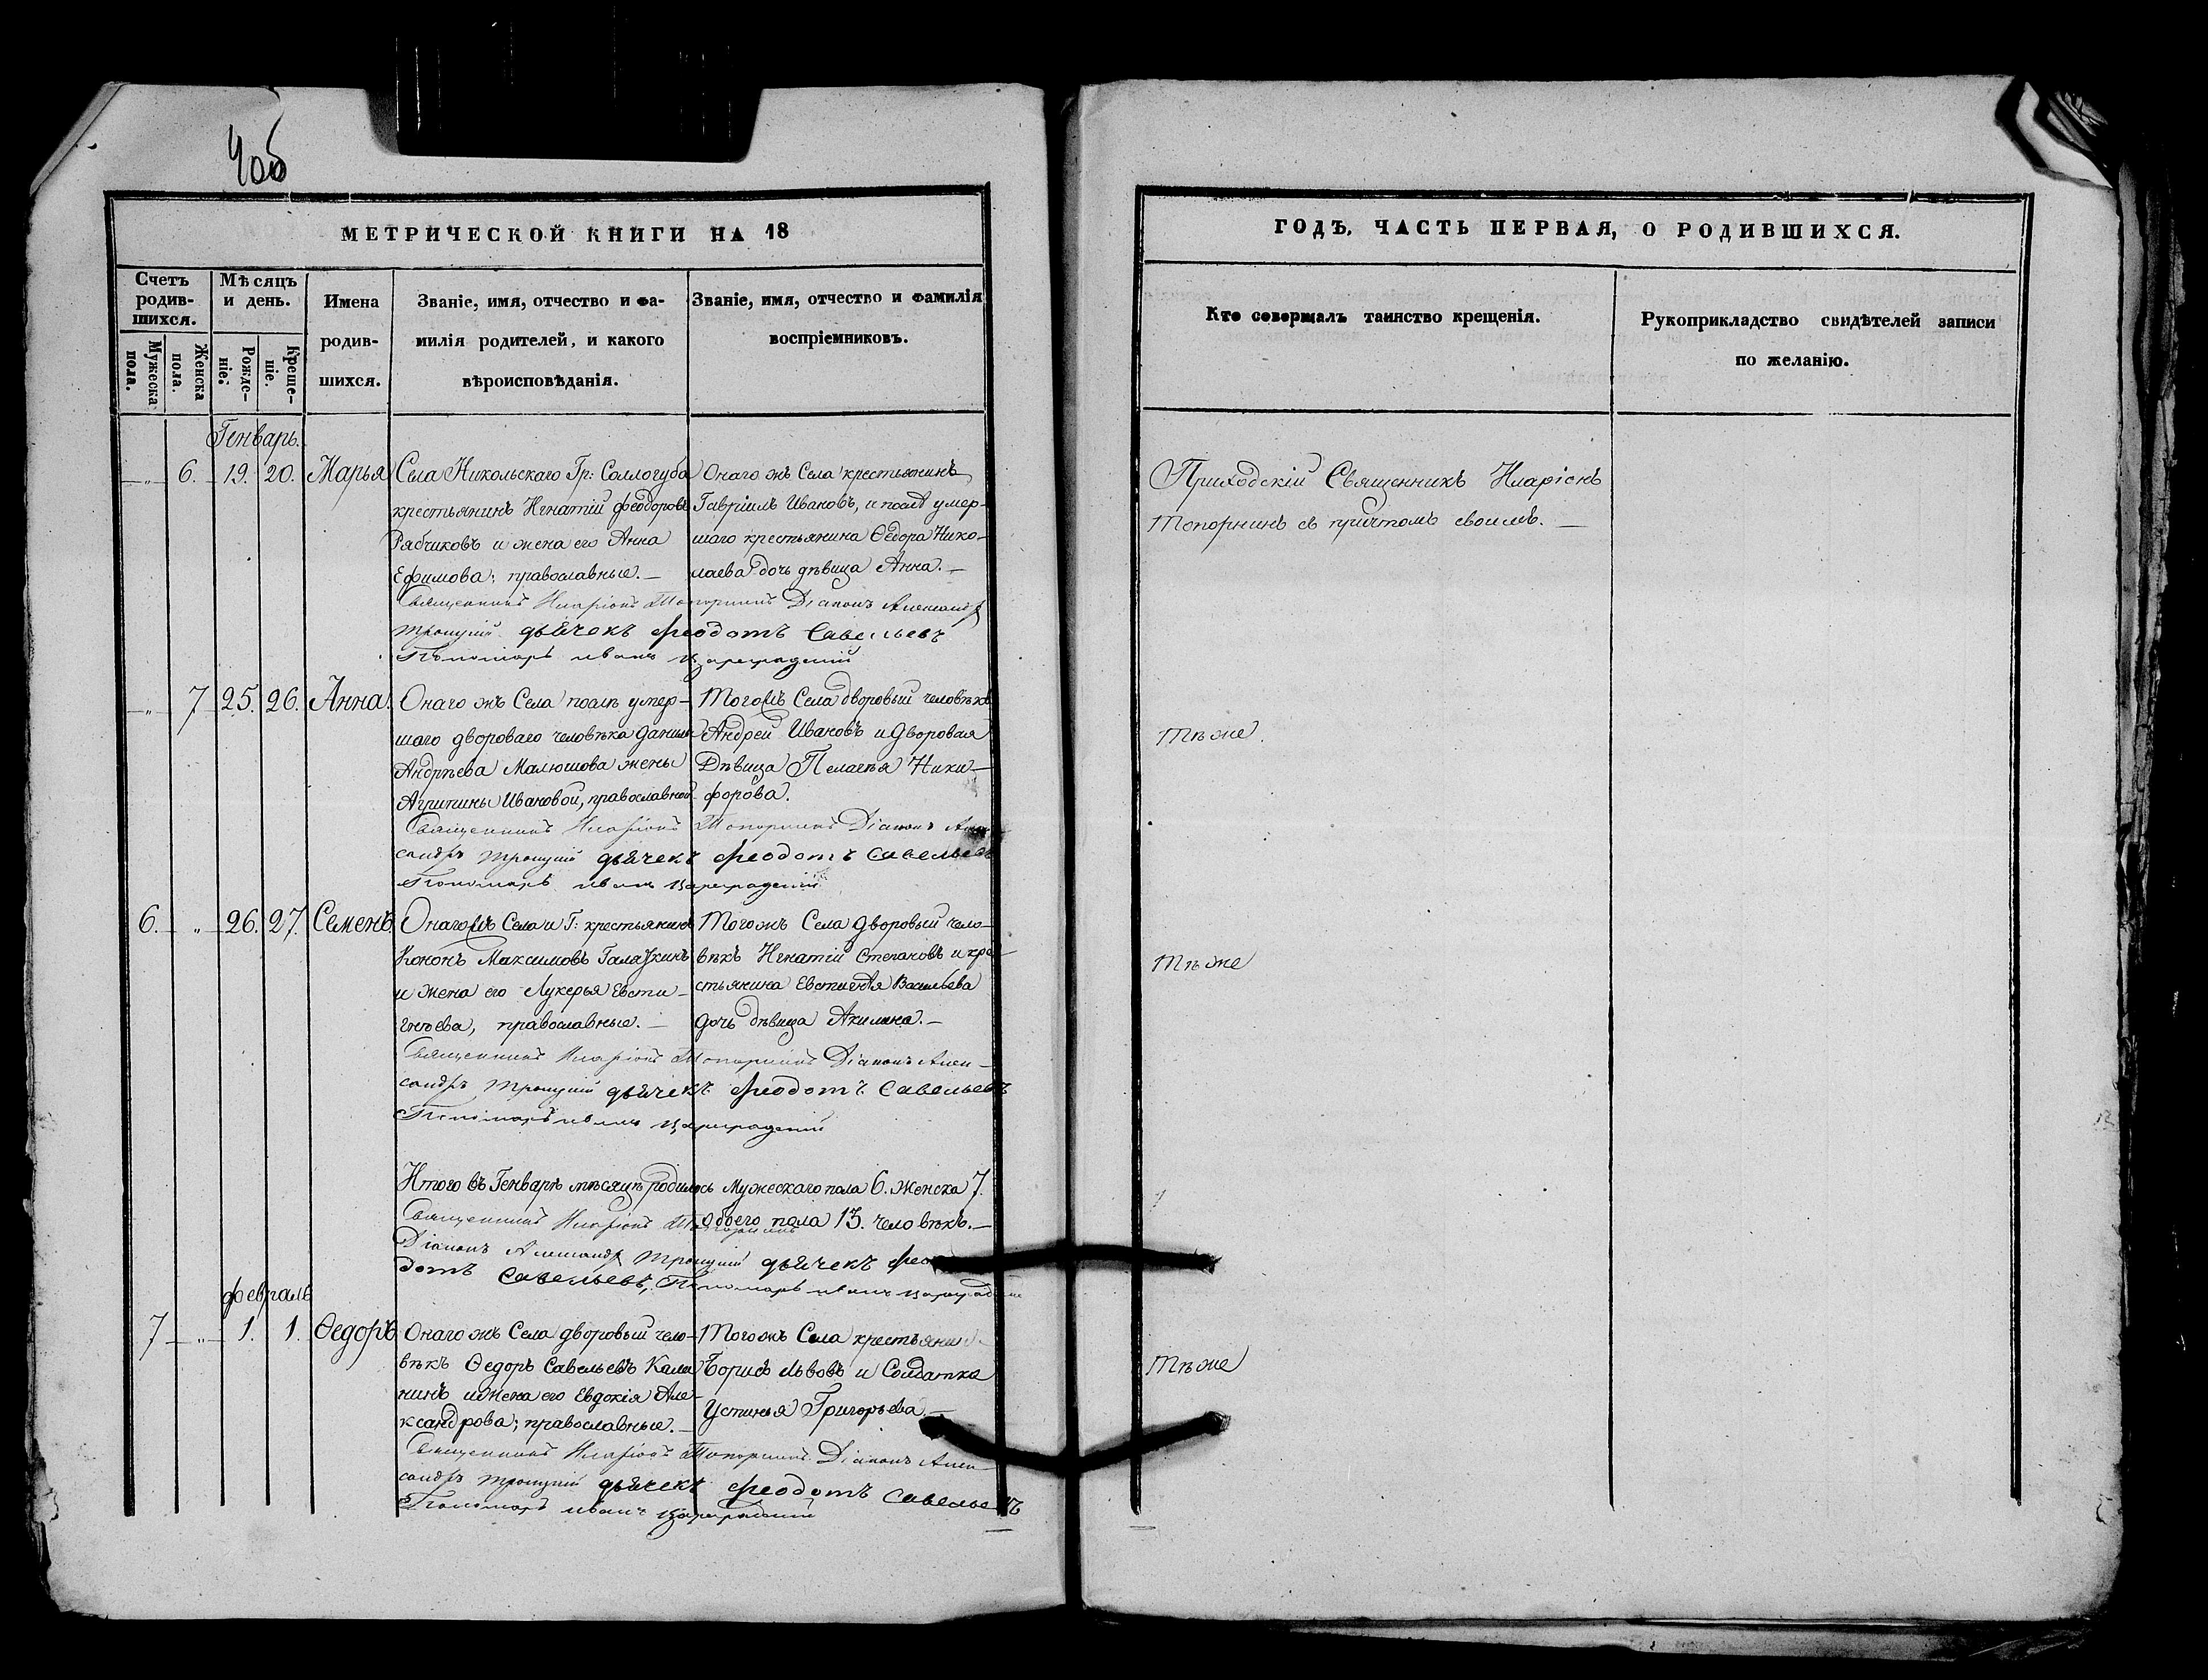 406
МЕТРИЧЕСКОЙ КНИГИ НА 18
Счетъ родив-шихся.
Мѣсяцъ и день.
Имена родив-шихся.
Званіе, имя, отчество и фа-
милія родителей, и какого
вѣроисповѣданія.
Званіе, имя, отчество и фамилія
воспріемниковъ.
Мужеска пола.
Женска пола.
Рожде-ніе.
Креще-ніе.
Генварь.
„ 6. 19. 20. Марья
Села Никольскаго Гр: Соллогуба
крестьянинъ Игнатій Феодоровъ
Рябчиковъ и жена его Анна
Ефимова; православные. —
Онаго жъ Села крестьянинъ
Гавріилъ Ивановъ, и послѣ умер-
шаго крестьянина Ѳедора Нико-
лаева дочь дѣвица Анна. —
Священникъ Иларіонъ Топорнинъ Діаконъ Александръ
Троицкій дьячекъ Феодотъ Савельевъ
Пономарь Иванъ Цареградскій
„ 7 25. 26. Анна.
Онаго жъ Села послѣ умер-
шаго двороваго человѣка Данилы
Андрѣева Малюшова жены
Агрипины Ивановой, православной
Тогожъ Села дворовый человѣкъ
Андрей Ивановъ и дворовая
Дѣвица Пелагѣя Ники-
форова.
Священникъ Иларіонъ Топорнинъ Діаконъ Алек-
сандръ Троицкій дьячекъ Феодотъ Савельевъ
Пономарь Иванъ Цареградскій
6. „ 26. 27. Семенъ.
Онагожъ Села и Г: крестьянинъ
Кононъ Максимовъ Галяукинъ
и жена его Лукерья Евсти-
гнѣева, православные. —
Тогожъ Села дворовый чело-
вѣкъ Игнатій Степановъ и кре-
стьянина Евстигнѣя Васильева
дочь дѣвица Акилина. —
Священникъ Иларіонъ Топорнинъ Діаконъ Алек-
сандръ Троицкій дьячекъ Феодотъ Савельевъ
Пономарь Иванъ Цареградскій
Итого въ Генварѣ мѣсяцѣ родилось Мужескаго пола 6. Женска 7.
Обоего пола 13. человѣкъ. —
Священникъ Иларіонъ Топорнинъ
Діаконъ Александръ Троицкій дьячекъ Фео
дотъ Савельевъ, Пономарь Иванъ Цареградскій
Февраль
7 „ 1. 1. Ѳедоръ
Онаго жъ Села дворовый чело-
вѣкъ Ѳедоръ Савельевъ Кали
нинъ и жена его Евдокія Але-
ксандрова; православные. —
Тогожъ Села крестьянинъ
Борисъ Львовъ и Солдатка
Устинья Григорьева. —
Священникъ Иларіонъ Топорнинъ Діаконъ Алек
сандръ Троицкій дьячекъ Феодотъ Савельевъ
Пономарь Иванъ Цареградскій
ГОДЪ. ЧАСТЬ ПЕРВАЯ, О РОДИВШИХСЯ.
Кто совершалъ таинство крещенія.
Рукоприкладство свидѣтелей записи
по желанію.
Приходскій Священникъ Иларіонъ
Топорнинъ съ причтомъ своимъ. —
Тѣ же.
Тѣ же
Тѣ же